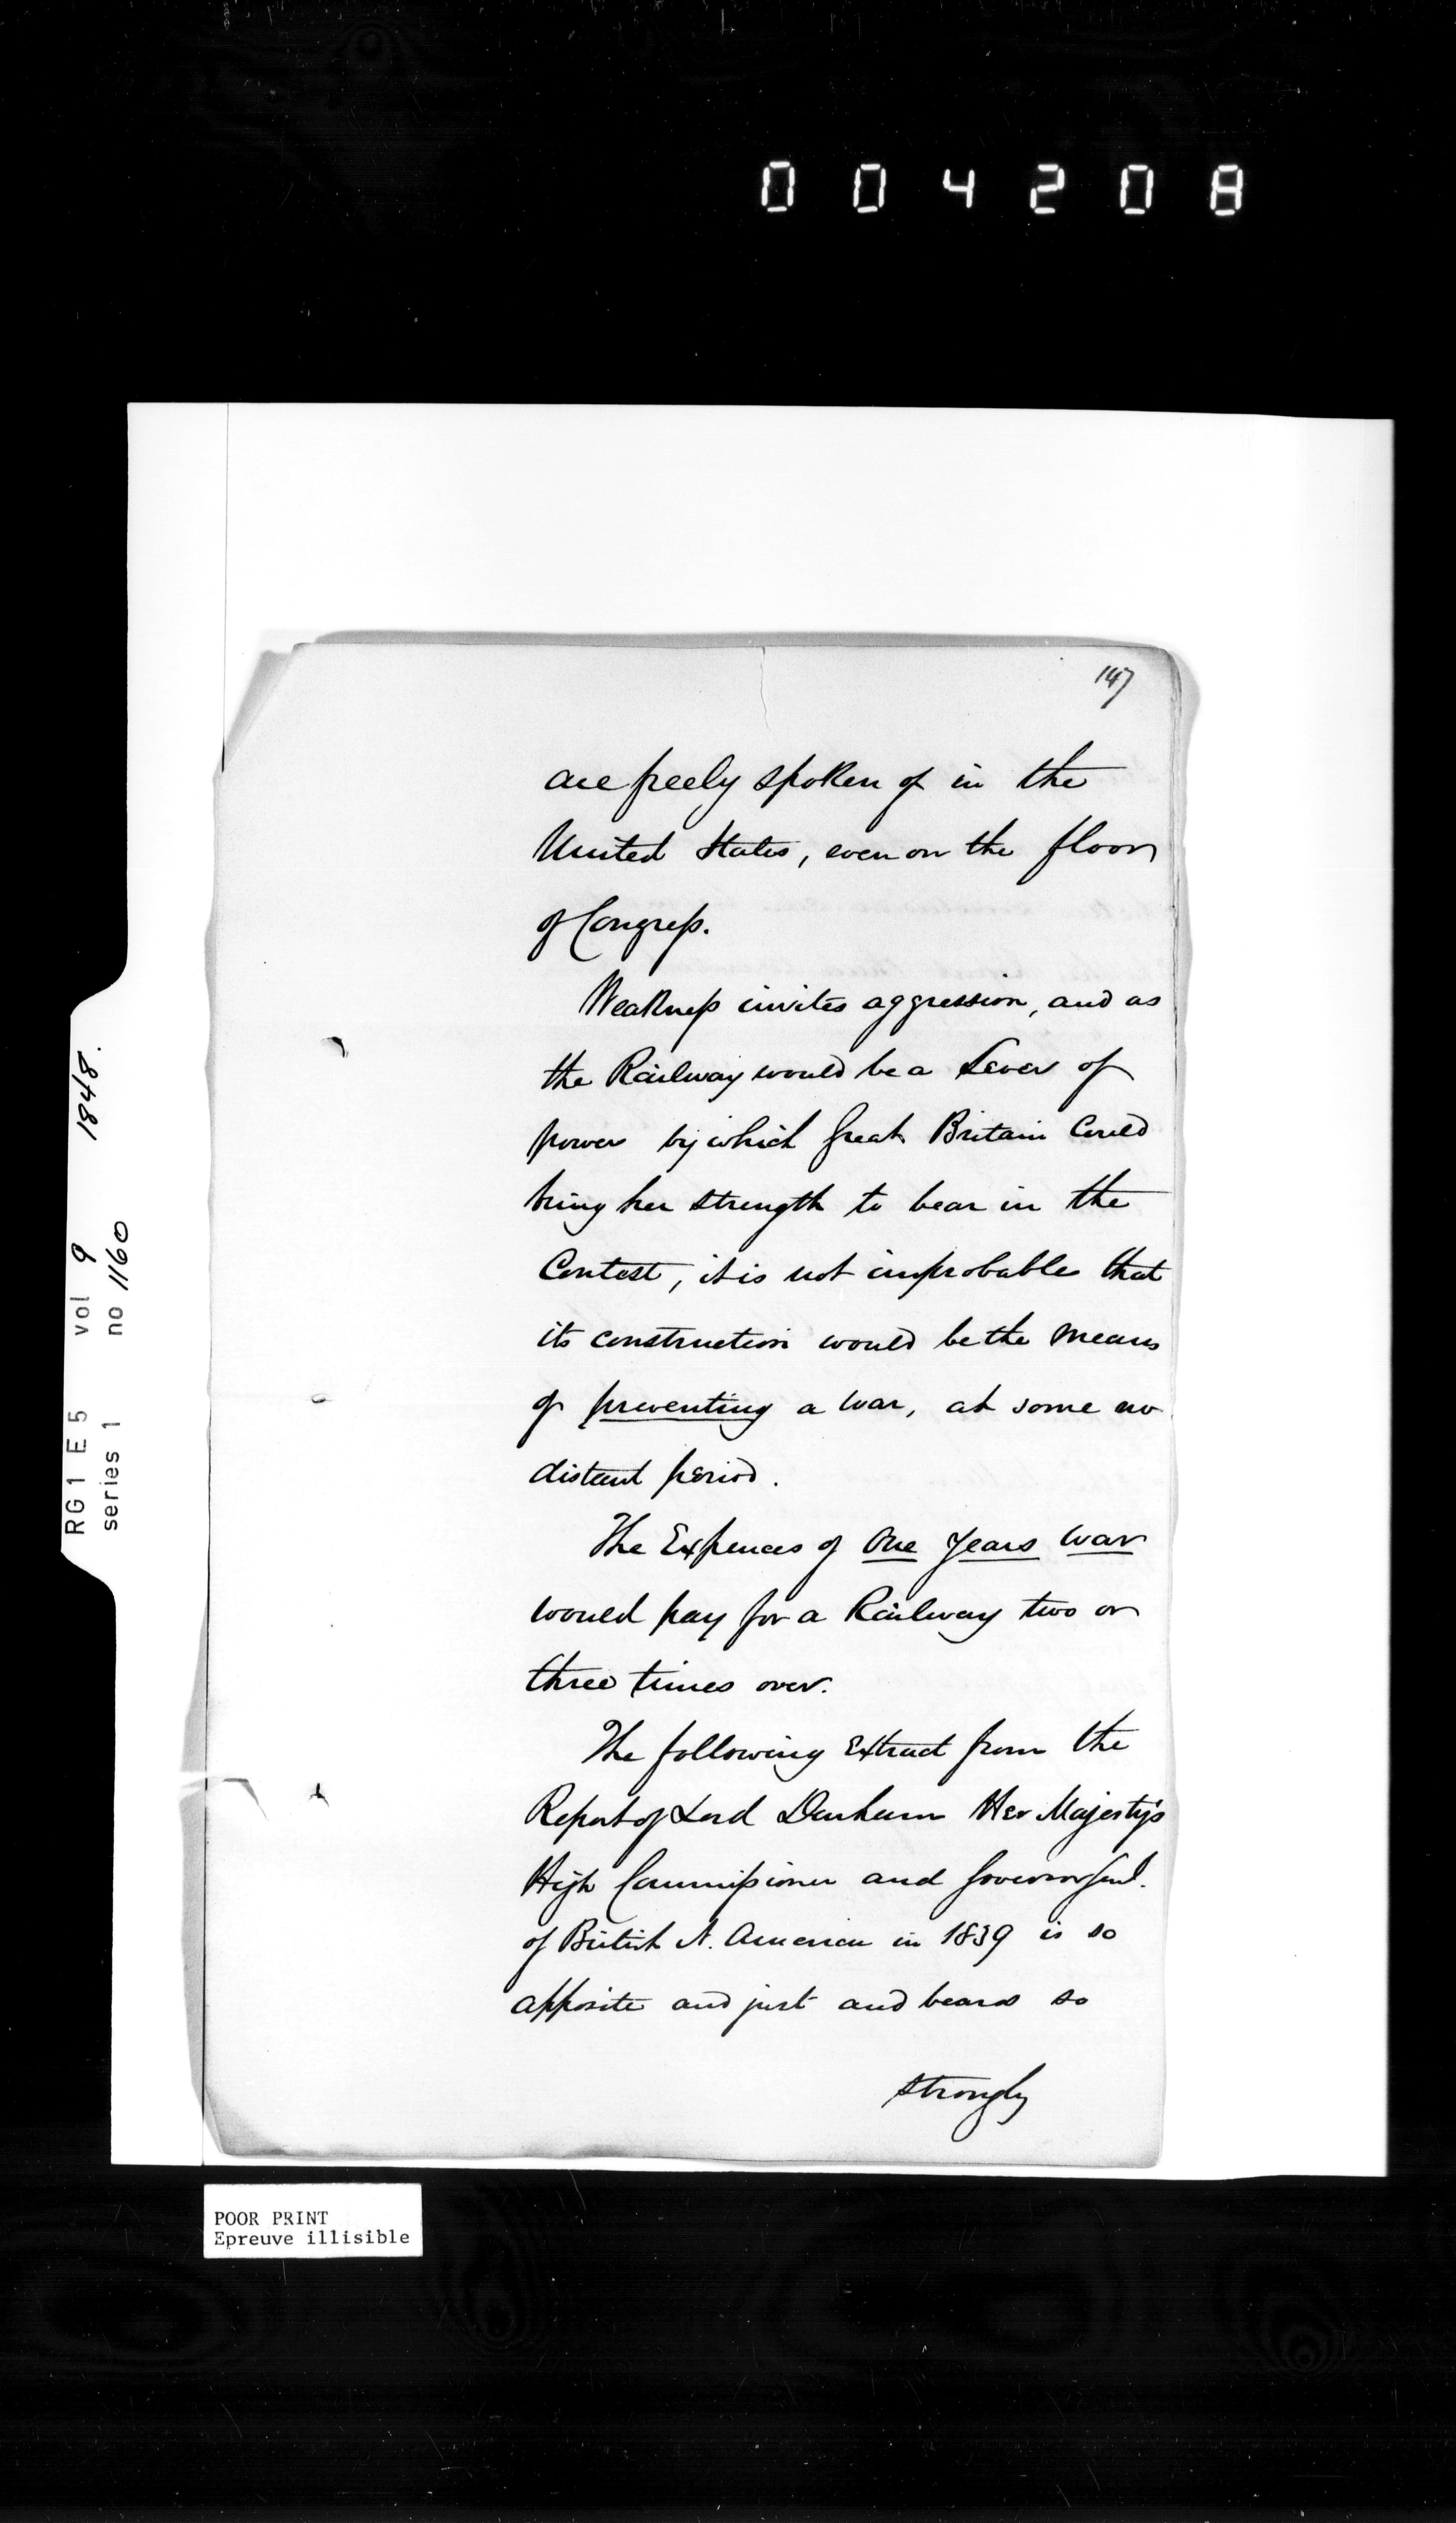 004208
147
are freely spoken of in the
United States, even on the floor
of Congress.
Weakness invites aggression, and as
the Railway would be a Lever of
power by which Great Britain Could
bring her strength to bear in the
Contest, it is not improbable that
its construction would be the means
of preventing a war, at some no
distant period.
The Expences of One Years War
would pay for a Railway two or
three times over.
The following Extract from the
Report of Lord Durham Her Majesty's
High Commissioner and Governor Genl.
of British N. America in 1839 is so
apposite and just and bears so
strongly
RG1 E5 vol 9 1848.
series 1 no 1160
POOR PRINT
Epreuve illisible